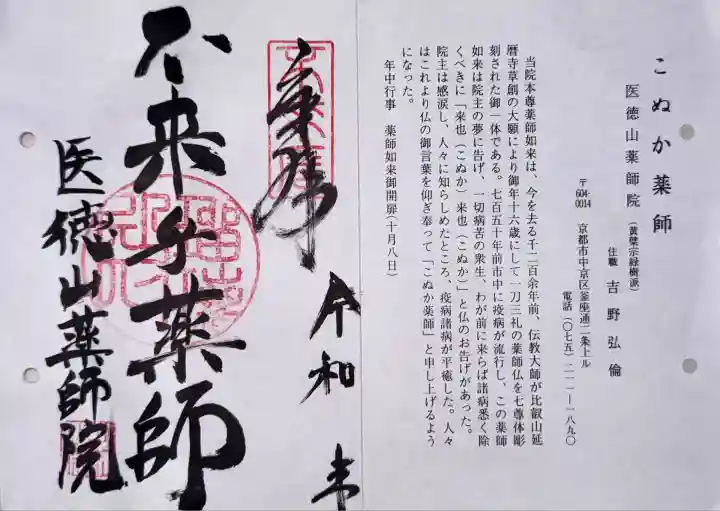 こぬか薬師
医徳山薬師院(黄檗宗緑樹派)
住職 吉野弘倫
〒604-0014 京都市中京区釜座通二条上ル
電話(〇七五)二一一―一八九〇
当院本尊薬師如来は、今を去る千二百余年前、伝教大師が比叡山延
暦寺草創の大願により御年十六歳にして一刀三礼の薬師仏を七尊体彫
刻された御一体である。七百五十年前市中に疫病が流行し、この薬師
如来は院主の夢に告げ、一切病苦の衆生、わが前に来らば諸病悉く除
くべきに「来也(こぬか)来也(こぬか)」と仏のお告げがあった。
院主は感涙し、人々に知らしめたところ、疫病諸病が平癒した。人々
はこれより仏の御言葉を仰ぎ奉って「こぬか薬師」と申し上げるよう
になった。
年中行事 薬師如来御開扉(十月八日)
奉拝
令和
不来乎薬師
医徳山薬師院